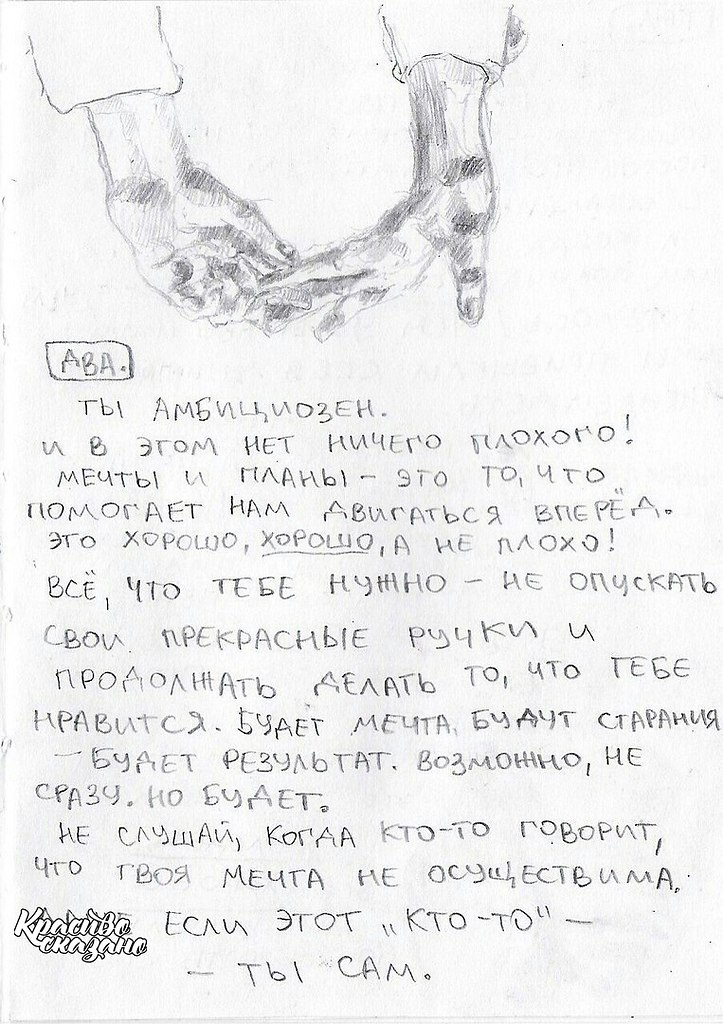 ДВА.
ТЫ АМБИЦИОЗЕН.
И В ЭТОМ НЕТ НИЧЕГО ПЛОХОГО!
МЕЧТЫ И ПЛАНЫ – ЭТО ТО, ЧТО
ПОМОГАЕТ НАМ ДВИГАТЬСЯ ВПЕРЁД.
ЭТО ХОРОШО, ХОРОШО, А НЕ ПЛОХО!
ВСЁ, ЧТО ТЕБЕ НУЖНО – НЕ ОПУСКАТЬ
СВОИ ПРЕКРАСНЫЕ РУЧКИ И
ПРОДОЛЖАТЬ ДЕЛАТЬ ТО, ЧТО ТЕБЕ
НРАВИТСЯ. БУДЕТ МЕЧТА, БУДУТ СТАРАНИЯ
– БУДЕТ РЕЗУЛЬТАТ. ВОЗМОЖНО, НЕ
СРАЗУ. НО БУДЕТ.
НЕ СЛУШАЙ, КОГДА КТО-ТО ГОВОРИТ,
ЧТО ТВОЯ МЕЧТА НЕ ОСУЩЕСТВИМА.
ЕСЛИ ЭТОТ „КТО-ТО" –
– ТЫ САМ.
Красиво
сказано